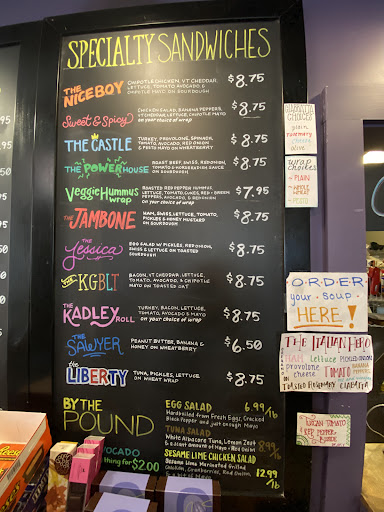 SPECIALTY SANDWICHES
THE NICEBOY
CHIPOTLE CHICKEN, VT CHEDDAR,
LETTUCE, TOMATO, AVOCADO &
CHIPOTLE MAYO ON SOURDOUGH
$8.75
Sweet & Spicy
CHICKEN SALAD, BANANA PEPPERS,
VT CHEDDAR, LETTUCE, CHIPOTLE MAYO
on your choice of wrap
$8.75
THE CASTLE
TURKEY, PROVOLONE, SPINACH,
TOMATO, AVOCADO, RED ONION
& PESTO MAYO ON WHEATBERRY
$8.75
THE POWERHOUSE
ROAST BEEF, SWISS, RED ONION,
TOMATO & HORSERADISH SAUCE
ON SOURDOUGH
$8.75
Veggie Hummus wrap
ROASTED RED PEPPER HUMMUS,
LETTUCE, TOMATO, CUKES, RED + GREEN
PEPPERS, AVOCADO, & RED ONION
on your choice of wrap
$7.95
THE JAMBONE
HAM, SWISS, LETTUCE, TOMATO,
PICKLES & HONEY MUSTARD
ON SOURDOUGH
$8.75
The Jessica
EGG SALAD W/ PICKLES, RED ONION,
SWISS & LETTUCE ON TOASTED
SOURDOUGH
$8.75
KGBLT
BACON, VT CHEDDAR, LETTUCE,
TOMATO, AVOCADO, & CHIPOTLE
MAYO ON TOASTED OAT
$8.75
THE KADLEY ROLL
TURKEY, BACON, LETTUCE,
TOMATO, AVOCADO & MAYO
on your choice of wrap
$8.75
THE SAWYER
PEANUT BUTTER, BANANA &
HONEY ON WHEATBERRY
$6.50
the LIBERTY
TUNA, PICKLES, LETTUCE
ON WHEAT WRAP
$8.75
BY THE POUND
EGG SALAD 6.99/lb
Hardboiled from Fresh Eggs, Cracked
Black Pepper and just enough Mayo
TUNA SALAD 8.99/lb
White Albacore Tuna, Lemon Zest
& a slight amount of Mayo + Red Onion
SESAME LIME CHICKEN SALAD 12.99/lb
Sesame Lime Marinated Grilled
Chicken, Cranberries, Red Onion,
& a bit of Mayo
AVOCADO
thing for $2.00
CHOICES
plain
rosemary
cheese
olive
wrap
choices
- PLAIN
- WHOLE
WHEAT
ORDER
your SOUP
HERE!
THE ITALIAN HERO
HAM, lettuce PICKLED ONIONS
provolone cheese TOMATO BANANA PEPPERS
on TOASTED ROSEMARY CIABATTA
VEGAN TOMATO
RED PEPPER